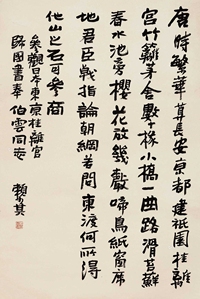 唐時繁華長安京都建祇園桂離
宮竹籬茅舍數十椽小橋一曲路滑蘚
春水池旁櫻花放幾聲啼鳥紙窗席
地君臣戰指論朝綱若問東渡何所得
他山之石可參商
參觀日本東京桂離宮
歸國書奉伯雲同志
賴少其